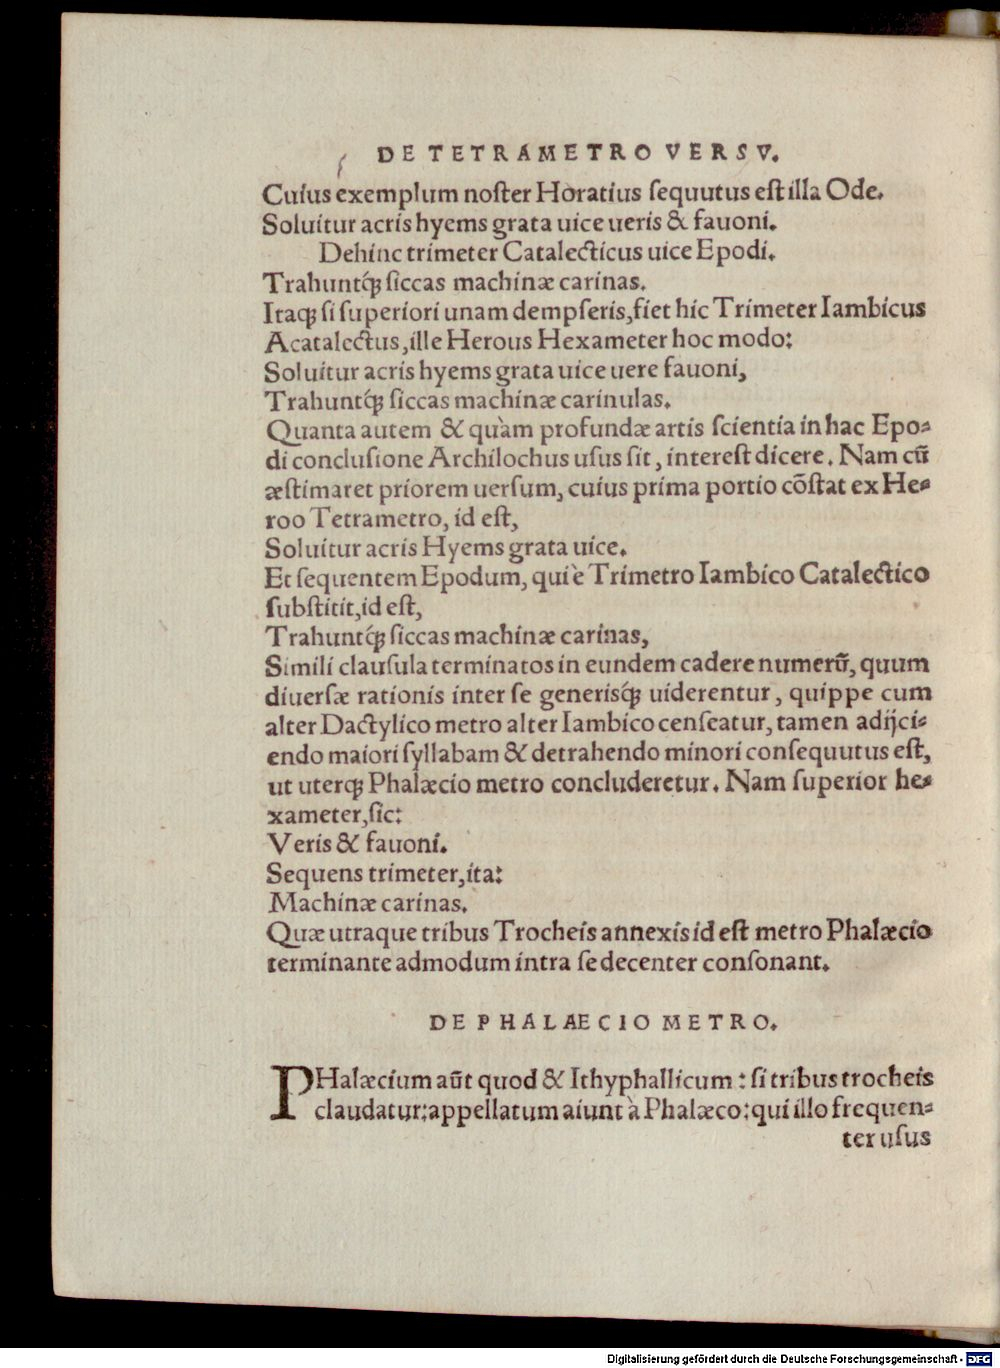 DE TETRAMETRO VERSV.
Cuius exemplum noſter Horatius ſequutus eſt illa Ode.
Soluitur acris hyems grata uice ueris & fauoni.
Dehinc trimeter Catalecticus uice Epodi.
Trahuntq́ꝫ ſiccas machinæ carinas.
Itaqꝫ ſi ſuperiori unam dempſeris, fiet hic Trimeter Iambicus
Acatalectus, ille Herous Hexameter hoc modo:
Soluitur acris hyems grata uice uere fauoni,
Trahuntq́ꝫ ſiccas machinæ carinulas.
Quanta autem & quàm profundæ artis ſcientia in hac Epo-
di concluſione Archilochus uſus ſit, intereſt dicere. Nam cũ
æſtimaret priorem uerſum, cuius prima portio cõſtat ex He-
roo Tetrametro, id eſt,
Soluitur acris Hyems grata uice.
Et ſequentem Epodum, qui è Trimetro Iambico Catalectico
ſubſtitit, id eſt,
Trahuntq́ꝫ ſiccas machinæ carinas,
Simili clauſula terminatos in eundem cadere numerũ, quum
diuerſæ rationis inter ſe generisq́ꝫ uiderentur, quippe cum
alter Dactylico metro alter Iambico cenſeatur, tamen adijci-
endo maiori ſyllabam & detrahendo minori conſequutus eſt,
ut uterqꝫ Phalæcio metro concluderetur. Nam ſuperior he-
xameter, ſic:
Veris & fauoni.
Sequens trimeter, ita:
Machinæ carinas.
Quæ utraque tribus Trocheis annexis id eſt metro Phalæcio
terminante admodum intra ſe decenter conſonant.
DE PHALAECIO METRO.
PHalæcium aũt quod & Ithyphallicum : ſi tribus trocheis
claudatur: appellatum aiunt à Phalæco: qui illo frequen-
ter uſus
Digitalisierung gefördert durch die Deutsche Forschungsgemeinschaft - DFG